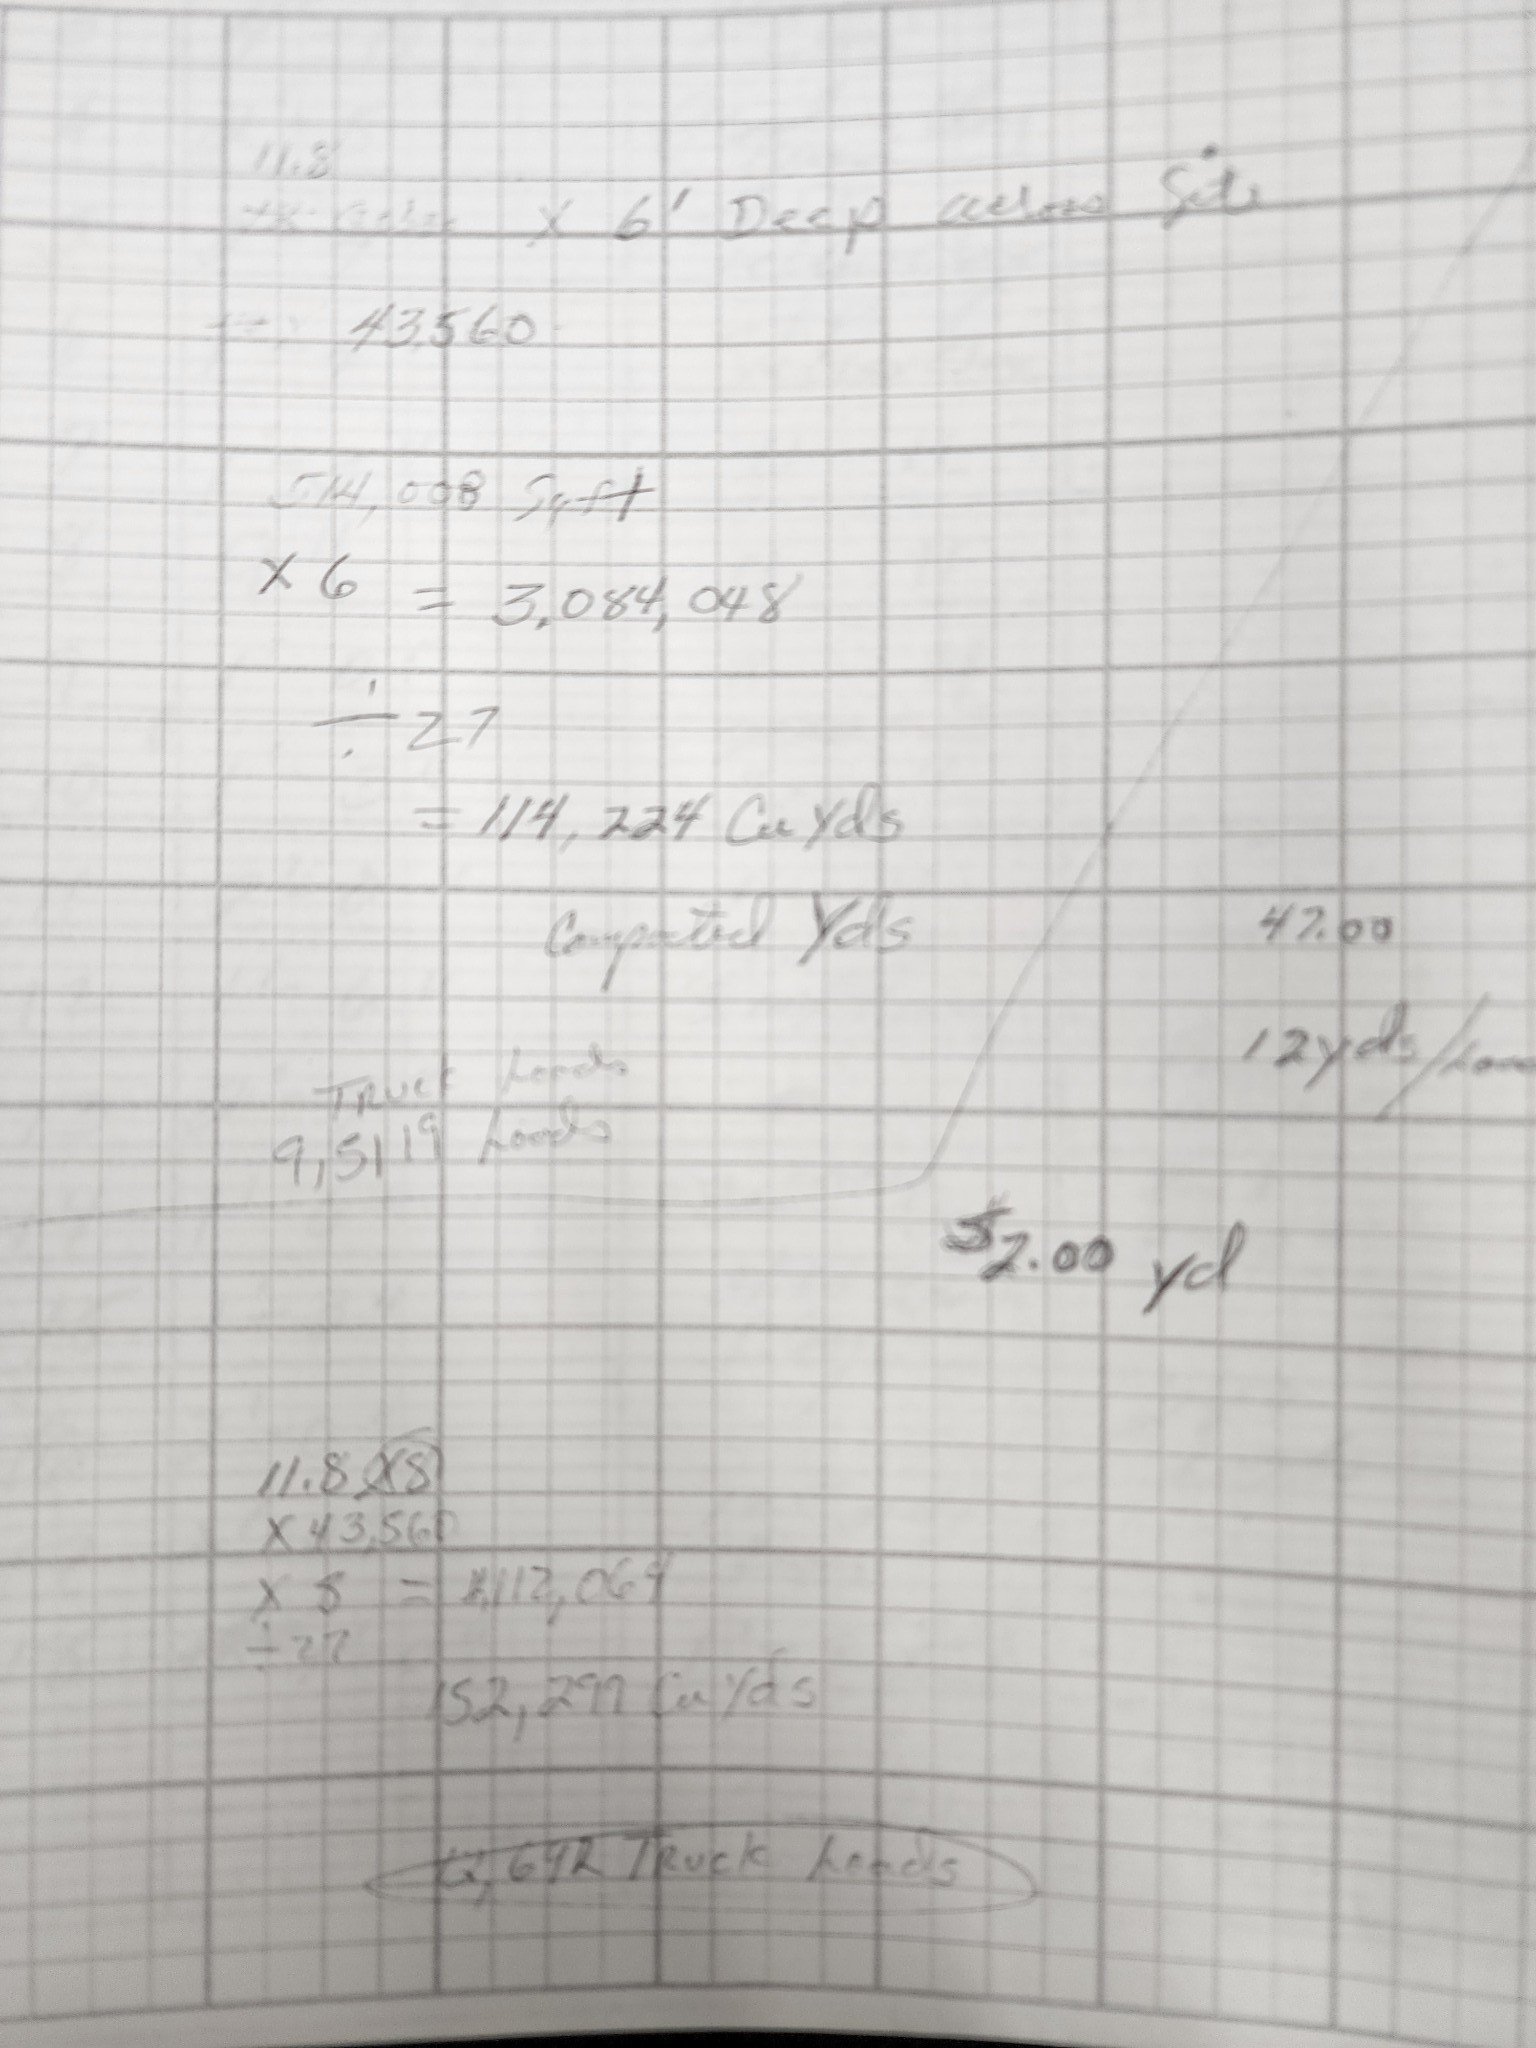 11.8
x 6' Deep across Site
43,560
514,008 Sqft
x 6 = 3,084,048
÷ 27
= 114,224 Cu Yds
Compacted Yds
47.00
12 yds/Load
Truck Loads
9,519 Loads
$2.00 yd
11.8 x8
x 43,560
x 8 = 4,112,064
÷ 27
152,297 Cu Yds
12,692 Truck Loads